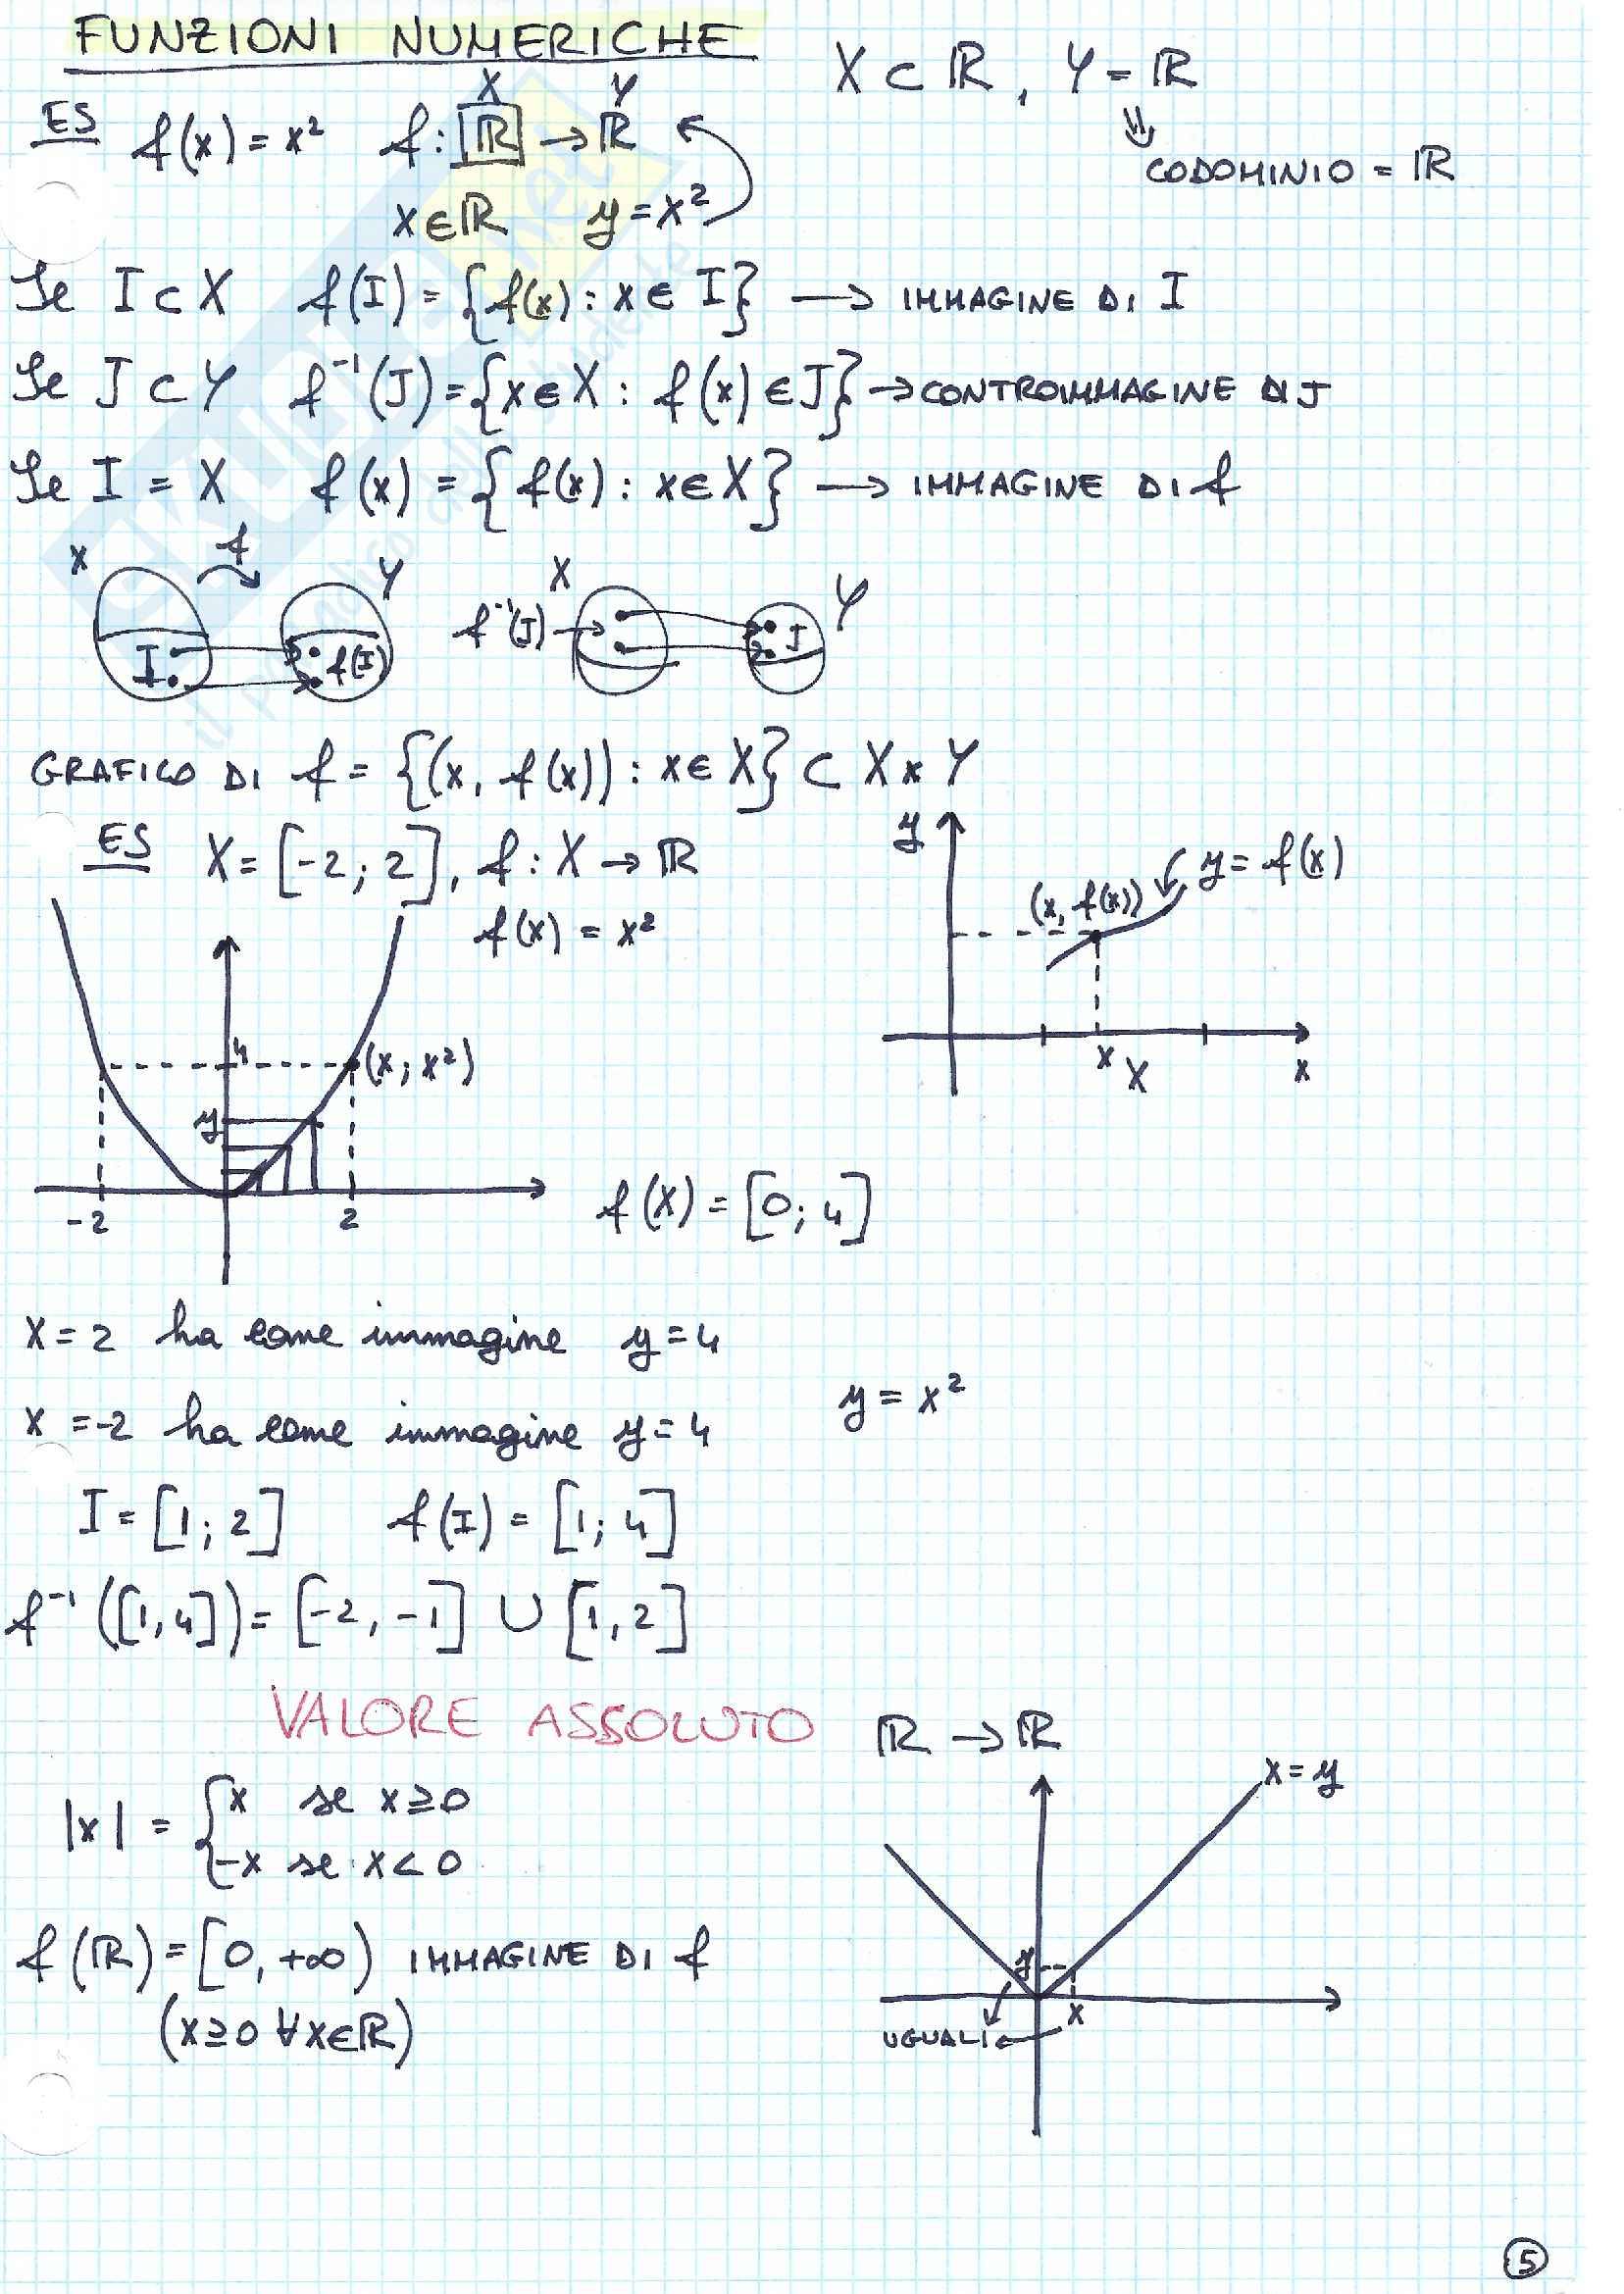 FUNZIONI NUMERICHE
X ⊂ ℝ, Y = ℝ
⇓
CODOMINIO = ℝ
X Y
ES f(x) = x² f: ℝ → ℝ
x∈ℝ y = x²
Se I ⊂ X f(I) = {f(x) : x ∈ I} → IMMAGINE DI I
Se J ⊂ Y f⁻¹(J) = {x ∈ X : f(x) ∈ J} → CONTROIMMAGINE DI J
Se I = X f(x) = {f(x) : x ∈ X} → IMMAGINE DI f
X f Y X Y
I f(I) f⁻¹(J) → J
GRAFICO DI f = {(x, f(x)) : x ∈ X} ⊂ X × Y
ES X = [-2; 2], f : X → ℝ
f(x) = x²
y
(x, f(x)) y = f(x)
x X x
4 (x; x²)
y
-2 2
f(X) = [0; 4]
x = 2 ha come immagine y = 4
x = -2 ha come immagine y = 4
y = x²
I = [1; 2] f(I) = [1; 4]
f⁻¹([1,4]) = [-2, -1] ∪ [1, 2]
VALORE ASSOLUTO ℝ → ℝ
x = y
|x| = { x se x ≥ 0
-x se x < 0
f(ℝ) = [0, +∞) IMMAGINE DI f
(x ≥ 0 ∀x∈ℝ)
y
x
UGUALI
5
SKUOLA.net